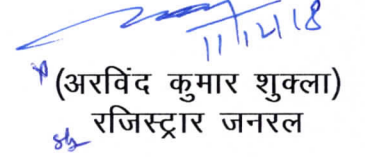 11/12/18
(अरविंद कुमार शुक्ला)
रजिस्ट्रार जनरल